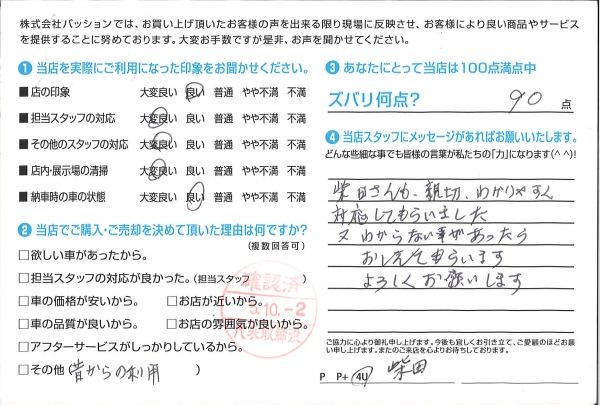 株式会社パッションでは、お買い上げ頂いたお客様の声を出来る限り現場に反映させ、お客様により良い商品やサービス
を提供することに努めております。大変お手数ですが是非、お声を聞かせてください。
❶ 当店を実際にご利用になった印象をお聞かせください。
■ 店の印象 大変良い 良い 普通 やや不満 不満
■ 担当スタッフの対応 大変良い 良い 普通 やや不満 不満
■ その他のスタッフの対応 大変良い 良い 普通 やや不満 不満
■ 店内・展示場の清掃 大変良い 良い 普通 やや不満 不満
■ 納車時の車の状態 大変良い 良い 普通 やや不満 不満
❷ 当店でご購入・ご売却を決めて頂いた理由は何ですか?
(複数回答可)
□欲しい車があったから。
□担当スタッフの対応が良かった。(担当スタッフ
□車の価格が安いから。 □お店が近いから。
□車の品質が良いから。 □お店の雰囲気が良いから。
□アフターサービスがしっかりしているから。
□その他(昔からの利用 )
確認済
5.10.-2
❸ あなたにとって当店は100点満点中
ズバリ何点? 90 点
❹ 当店スタッフにメッセージがあればお願いいたします。
どんな些細な事でも皆様の言葉が私たちの「力」になります(^ ^)!
柴田さんも、親切、わかりやすく
対応してもらいました
又わからない事があったら
おしえてもらいます
よろしくお願いします
ご協力に心より御礼申し上げます。今後も宜しくお引き立て、ご愛顧のほどお願い
申し上げます。またのご来店を心よりお待ちしております。
P P+ 4U 柴田